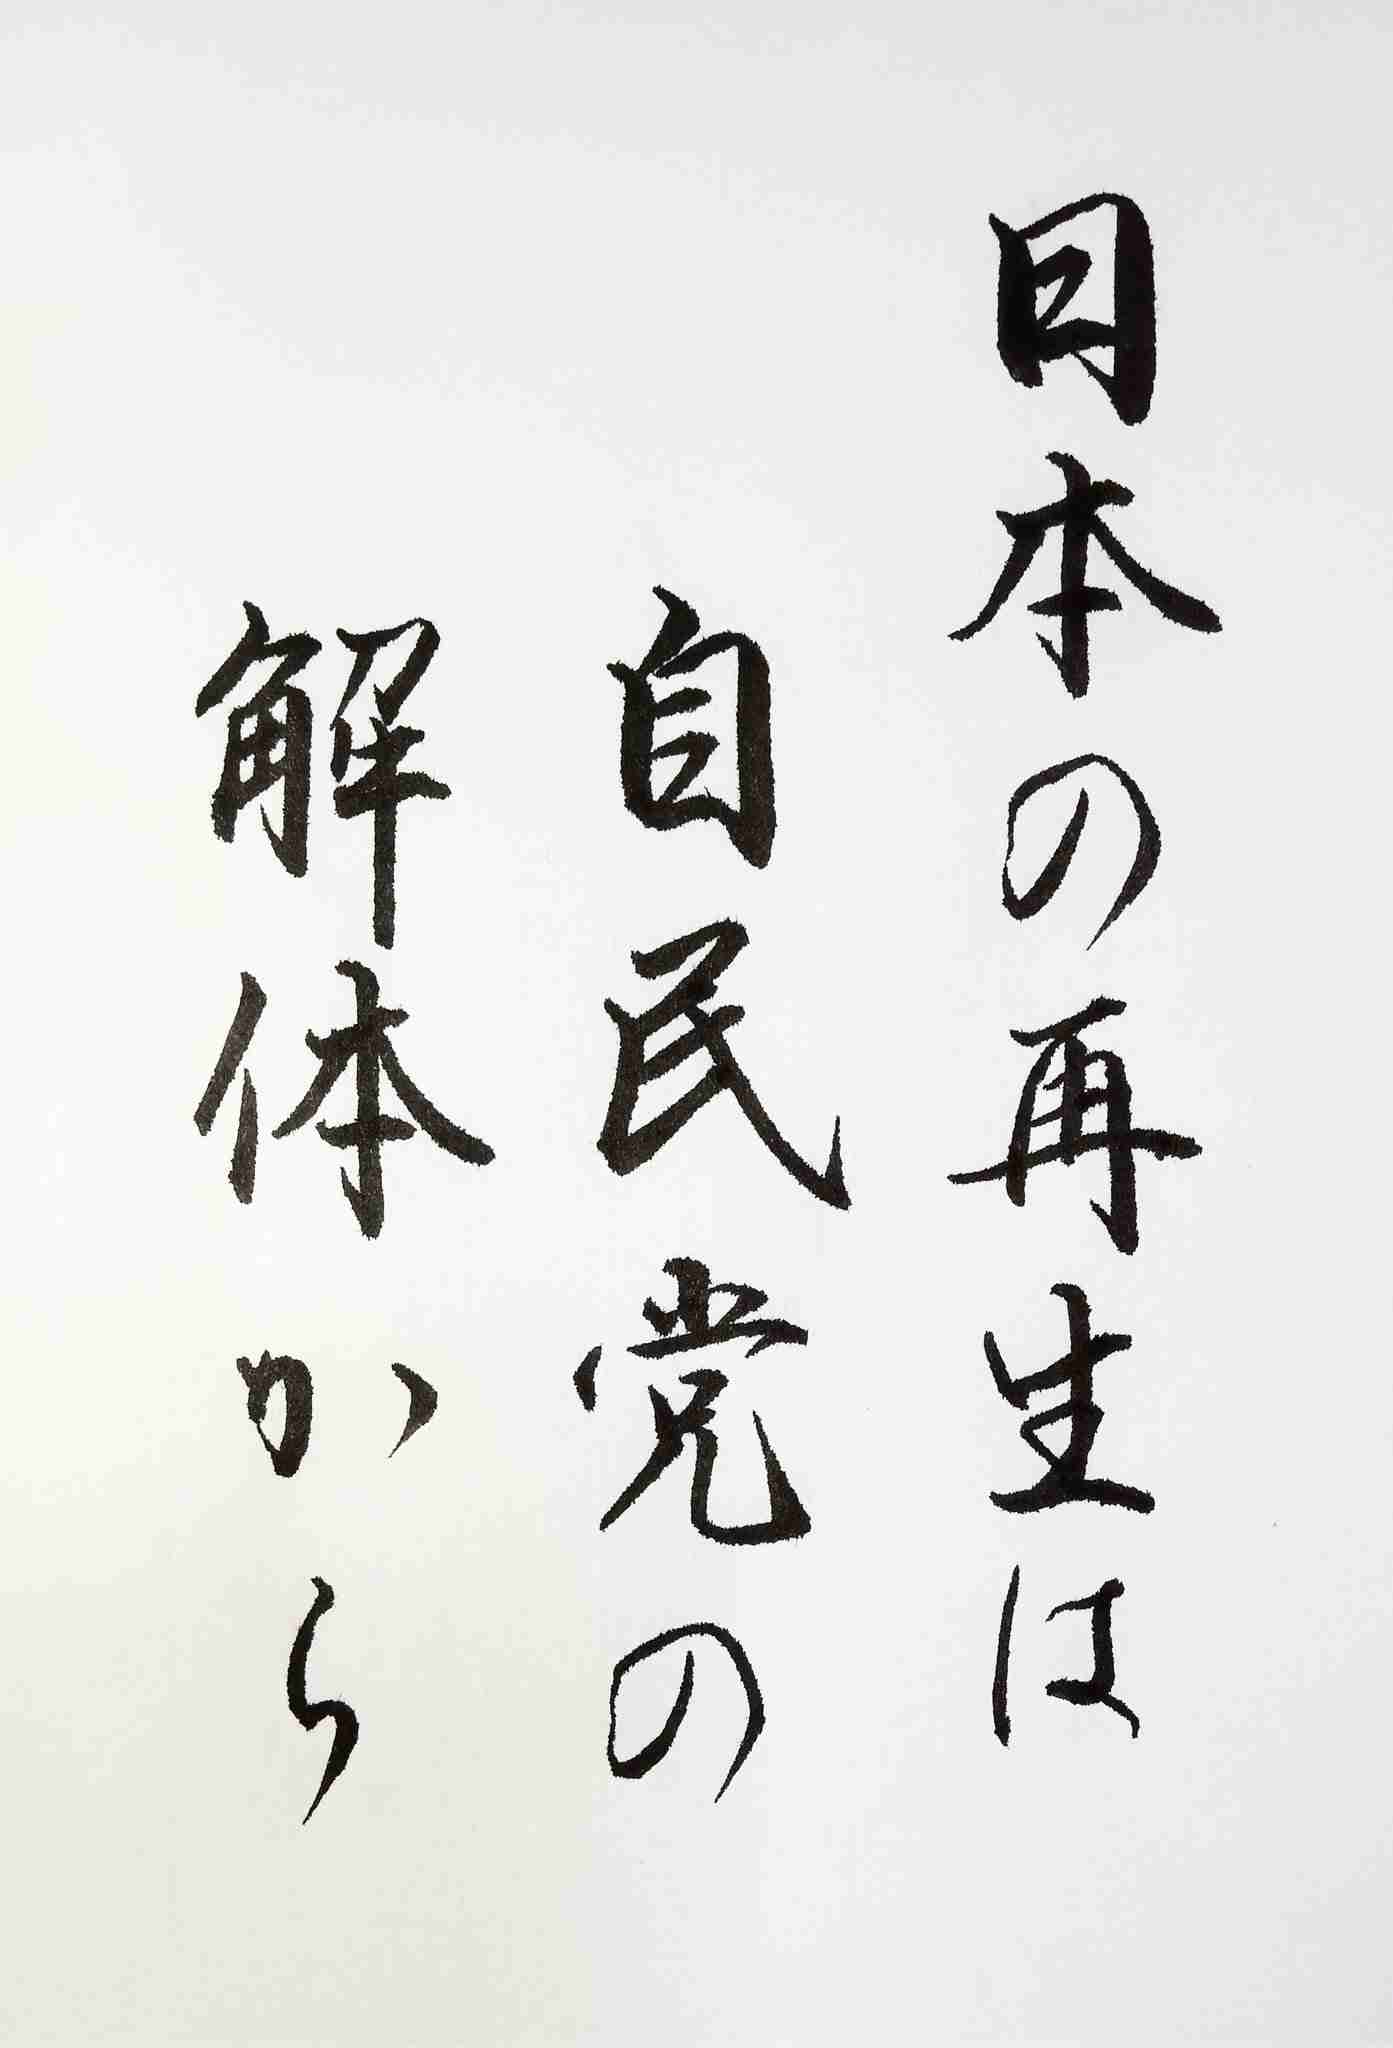 日本の再生は
自民党の
解体から